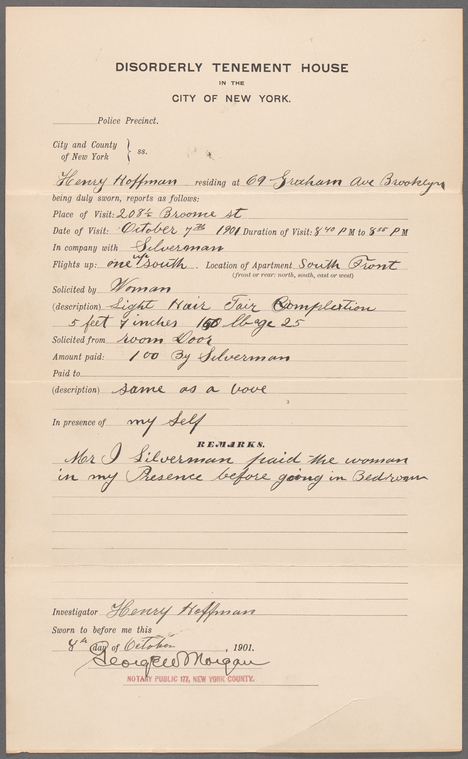 DISORDERLY TENEMENT HOUSE
IN THE
CITY OF NEW YORK.
Police Precinct.
City and County
of New York } ss.
Henry Hoffman residing at 69 Graham Ave Brooklyn
being duly sworn, reports as follows:
Place of Visit: 208½ Broome st
Date of Visit: October 7th 1901 Duration of Visit: 8 40 P M to 8 55 P M
In company with Silverman
Flights up: one up south. Location of Apartment South Front
(front or rear: north, south, east or west)
Solicited by Woman
(description) Light Hair Fair Complection
5 feet 4 inches 160 lb age 25
Solicited from room Door
Amount paid: 1 00 By Silverman
Paid to
(description) same as a bove
In presence of my self
REMARKS.
Mr J Silverman paid the woman
in my Presence before going in Bedroom
Investigator Henry Hoffman
Sworn to before me this
8th day of October, 1901.
George W Morgan
NOTARY PUBLIC 122, NEW YORK COUNTY.